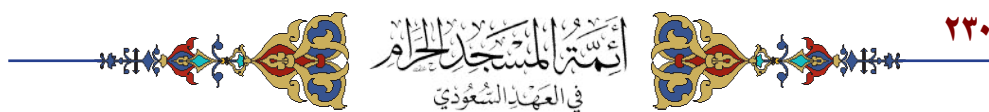 ٢٣٠
أئمة المسجد الحرام
في العهد السعودي